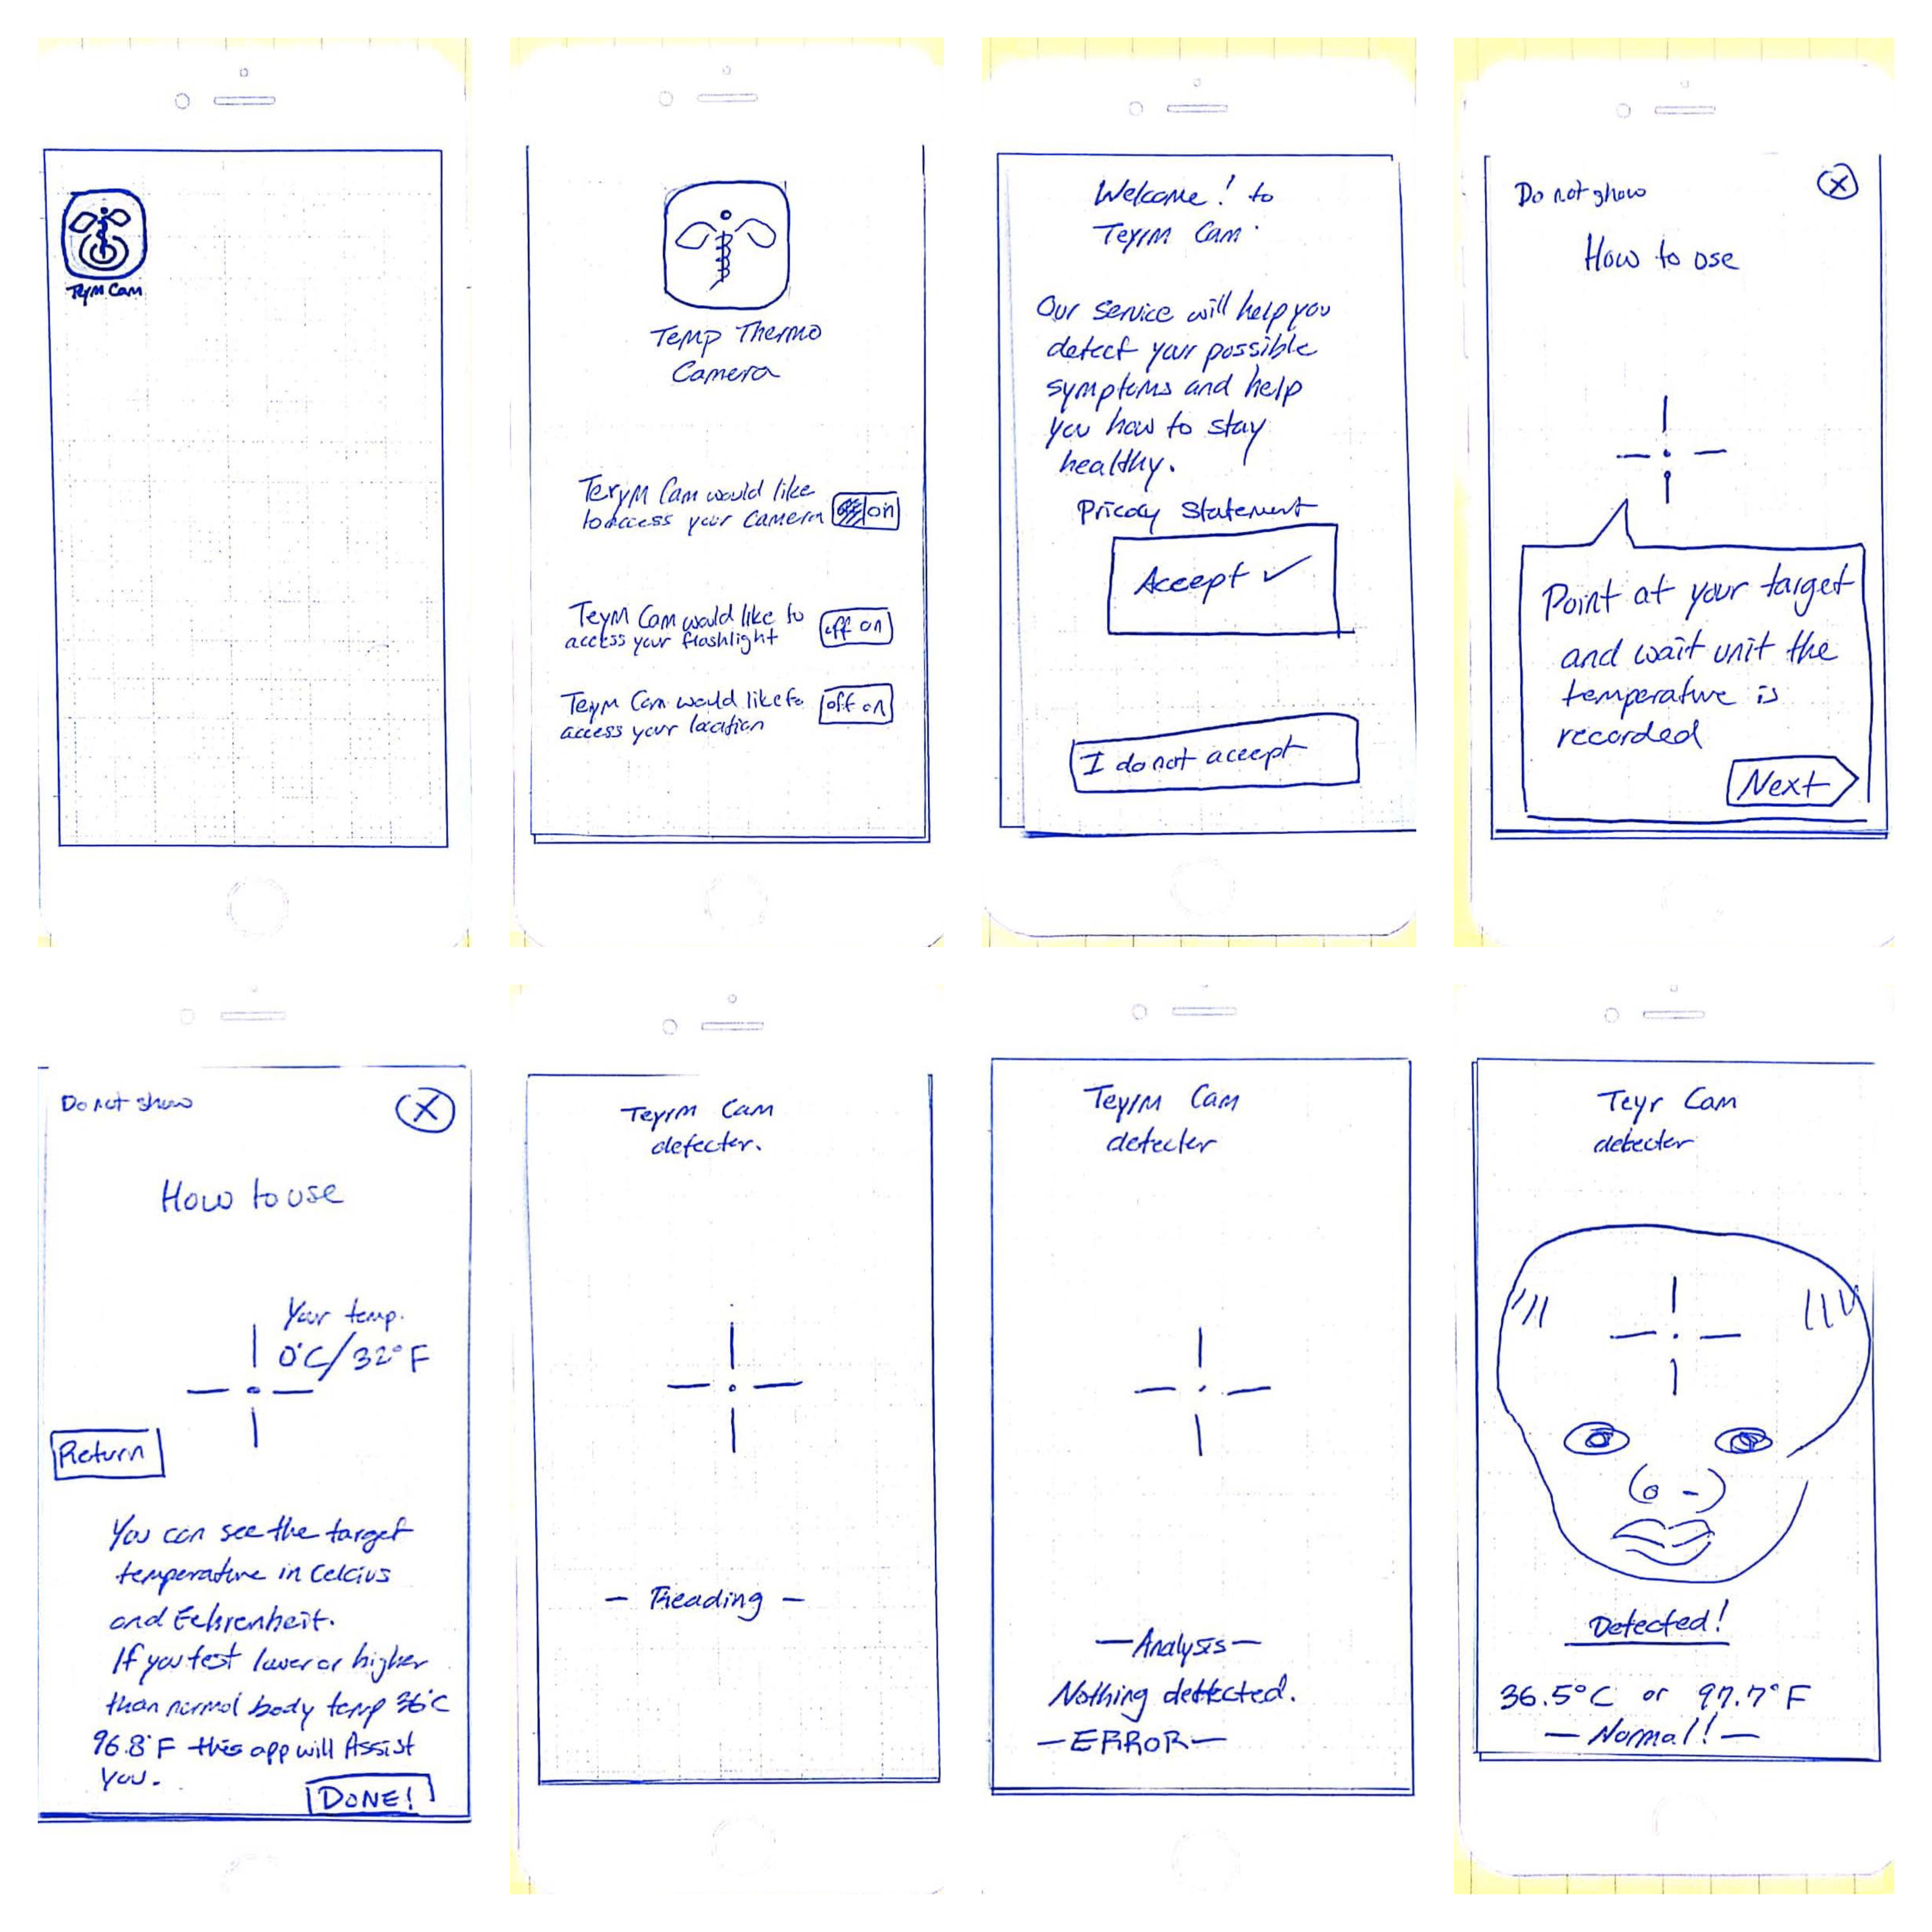 TeyM Cam
Temp Thermo
Camera
TeryM Cam would like
to access your camera on
TeyM Cam would like to off on
access your flashlight
TeyM Cam would like to off on
access your location
Welcome! to
TeyrM Cam.
Our service will help you
detect your possible
symptoms and help
you how to stay
healthy.
Pricacy Statement
Accept ✓
I do not accept
Do not show X
How to use
Point at your target
and wait unit the
temperature is
recorded
Next
Do not show X
How to use
Your temp.
0°C/32°F
Return
You can see the target
temperature in Celcius
and Fehrenheit.
If you test lower or higher
than normal body temp 36°C
96.8°F this app will Assist
you.
DONE!
TeyrM Cam
detecter.
- Reading -
TeyrM Cam
detecter
- Analysis -
Nothing detected.
- ERROR -
Teyr Cam
detecter
Detected!
36.5°C or 97.7°F
- Normal! -